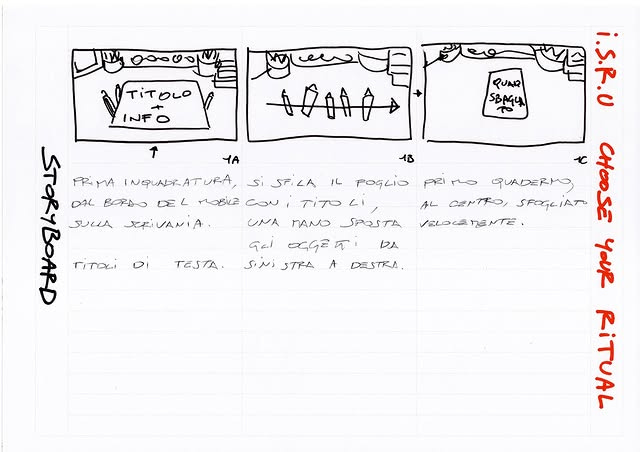 STORYBOARD
TITOLO
+
INFO
1A
PRIMA INQUADRATURA,
DAL BORDO DEL MOBILE
SULLA SCRIVANIA.
TITOLI DI TESTA.
1B
SI SFILA IL FOGLIO
CON I TITOLI,
UNA MANO SPOSTA
GLI OGGETTI DA
SINISTRA A DESTRA.
QUAD
SBAGLIA
TO
1C
PRIMO QUADERNO,
AL CENTRO, SFOGLIATO
VELOCEMENTE.
i.S.R.U CHOOSE YOUR RITUAL